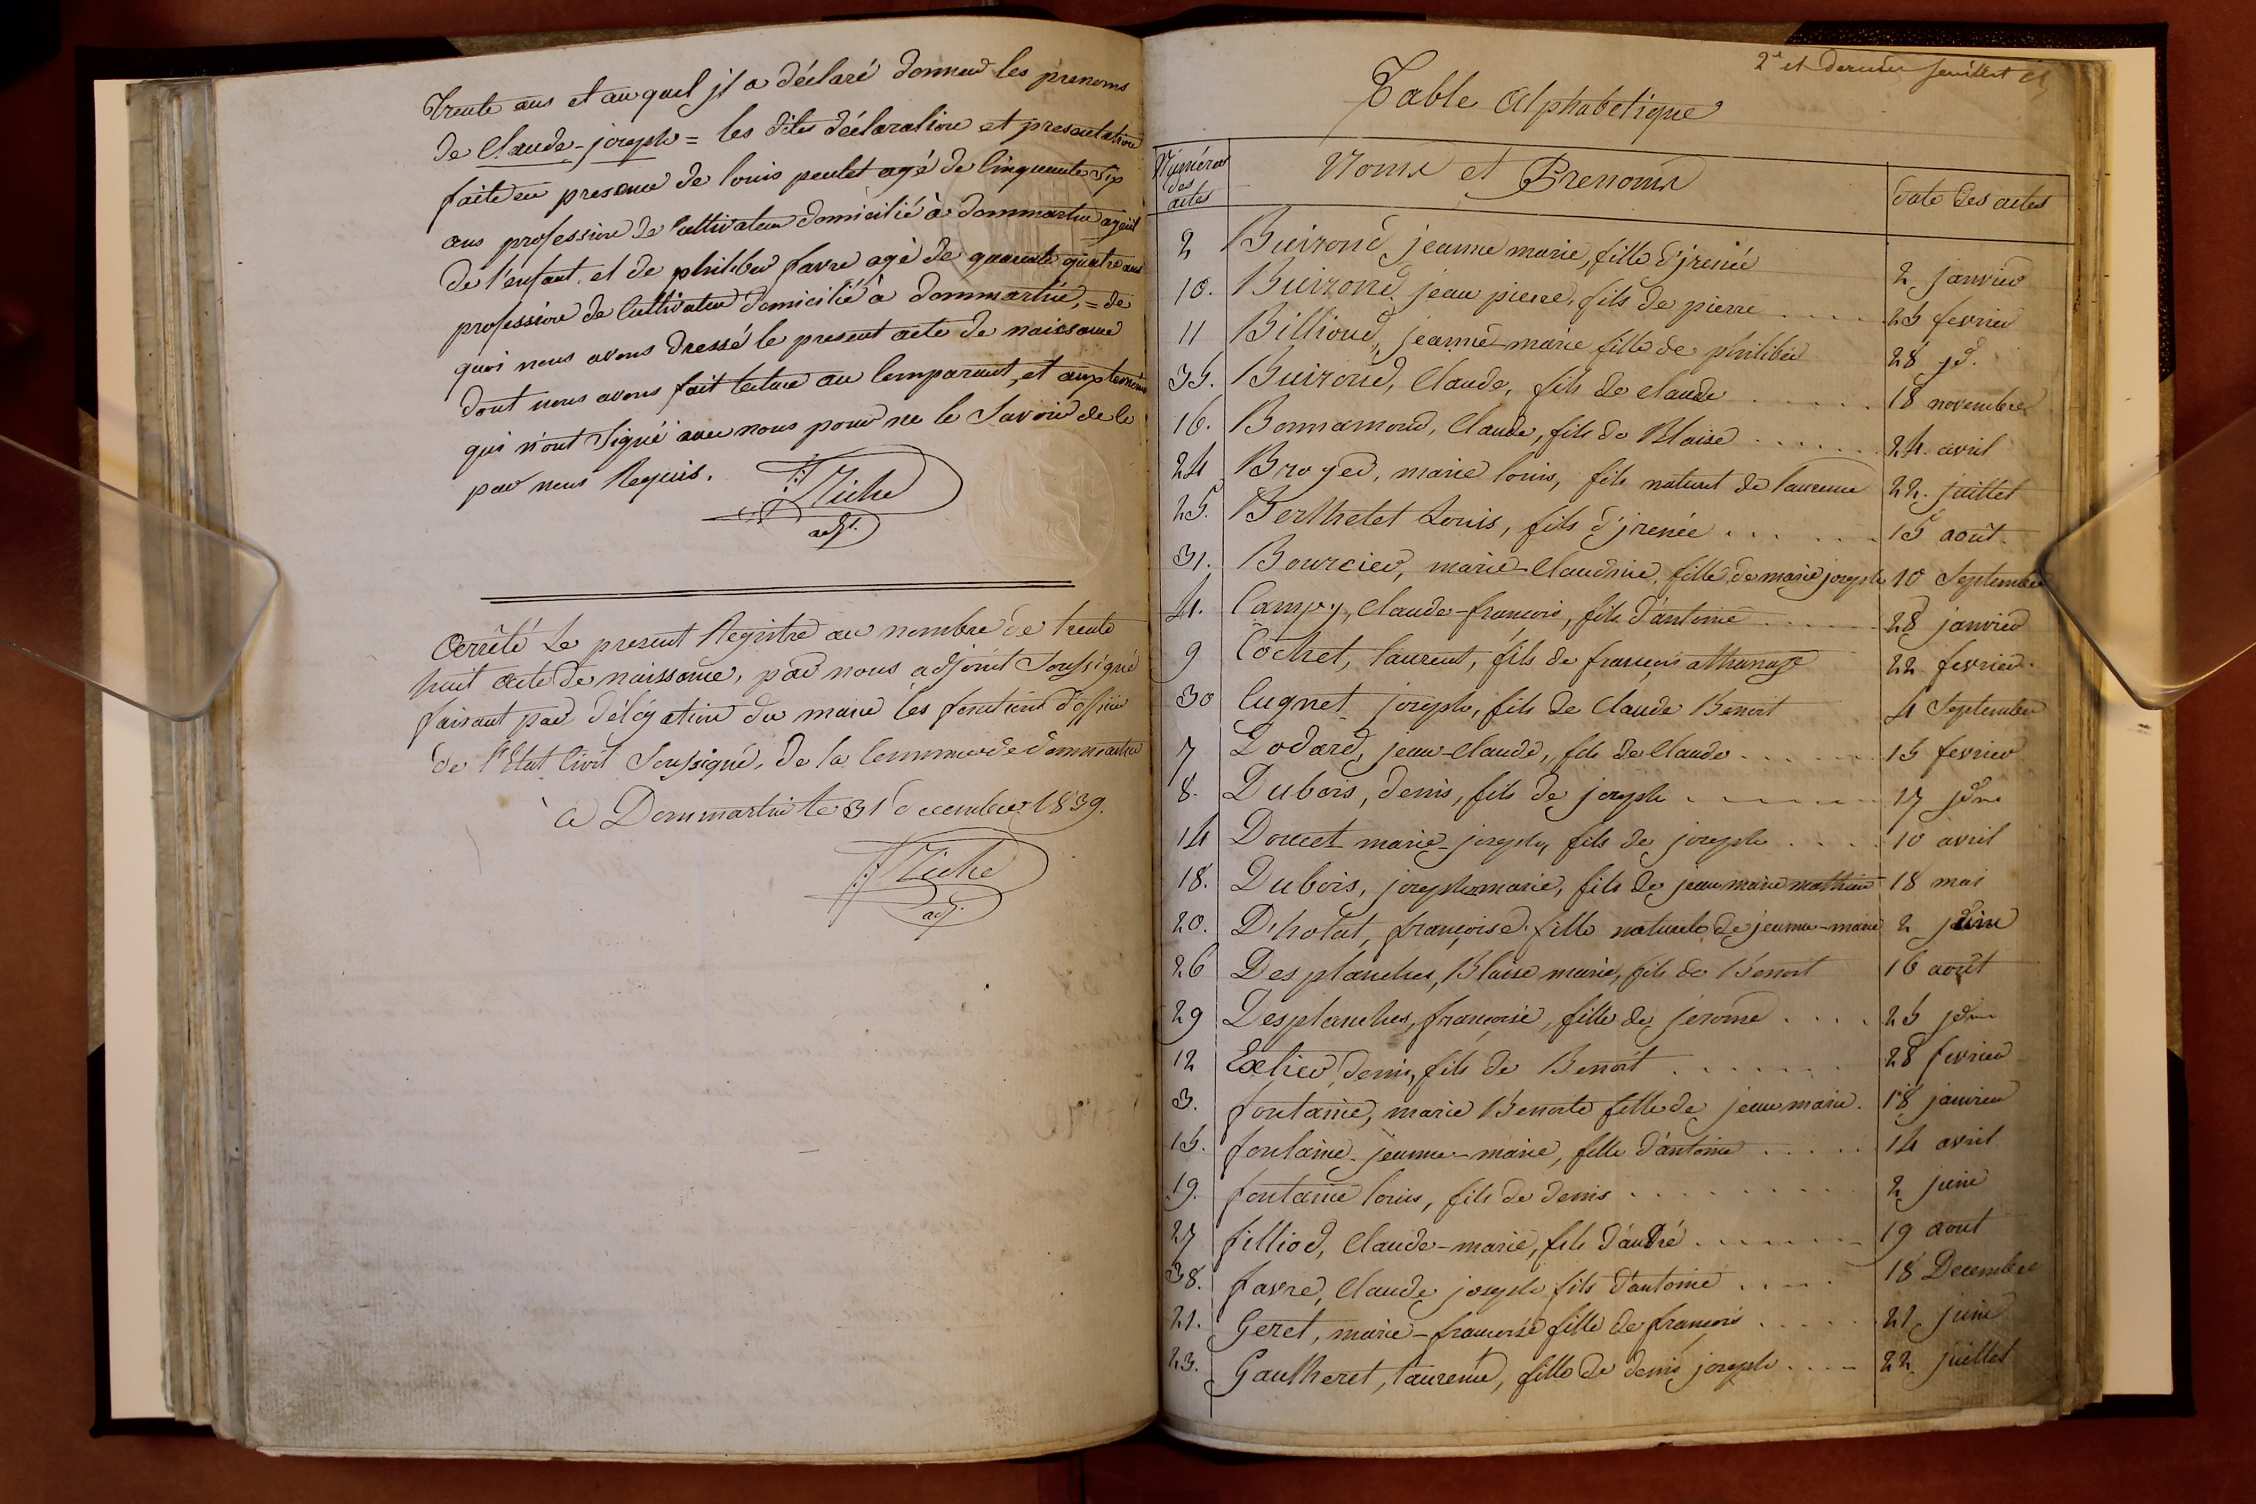 trente ans et au quel il a déclaré donner les prenoms
de Claude-joseph = les dites déclaration et presentation
faite en presence de louis peulet agé de cinquante six
ans profession de cultivateur domicilié à dommartin ayeul
de l'enfant. et de philiber favre agé de quarante quatre ans
profession de Cultivateur domicilié à dommartin, = de
quoi nous avons dressé le present acte de naissance
dont nous avons fait lecture au Comparant, et aux temoins
qui n'ont Signé avec nous pour ne le Savoir de ce
par nous Requis.
adj.
Arrêté Le present Registre au nombre de trente
huit acte de naissance, par nous adjoint Soussigné
faisant par délégation du maire les fonctions d'officier
de l'Etat Civil Soussigné, de la Commune de dommartin
a Dommartin le 31 decembre 1839.
adj.
2e et dernier feuillet
Table Alphabetique
Numéros des actes Noms et Prenoms date des actes
2 Buirond jeanne marie, fille d'irenée 2 janvier
10. Buirond jean pierre, fils de pierre 25 fevrier
11 Billioud, jeanne-marie fille de philibér 28 jd.
35. Buirond, Claude, fils de claude 18 novembre
16. Bonnamour, Claude, fils de Blaise 24 avril
24 Broyer, marie louis, fils naturel de laurence 22. juillet
25. Berthelet Louis, fils d'irenée 15 août
31. Bourcier, marie-Claudine, fille de marie joseph 10 Septembre
4. Campy, Claude-françois, fils d'antoine 28 janvier
9 Cochet, laurent, fils de françois athanaze 22 fevrier.
30 Cugnet joseph, fils de Claude Benoit 4 Septembre
7 Dodard, jean-Claude, fils de Claude 15 fevrier
8. Dubois, denis, fils de joseph 17 jdme
14 Doucet marie-joseph, fils de joseph 10 avril
18. Dubois, joseph marie, fils de jean marie mathieu 18 mai
20. D'hotal, françoise, fille naturele de jeanne-marie 2 juin
26 Desplanches, Blaise marie, fils de Benoit 16 août
29 Desplanches, françoise, fille de jerome 25 jdme
12 Exlier denis, fils de Benoit 28 fevrier
3. fontaine, marie Benoite fille de jean marie. 18 janvier
15. fontaine jeanne-marie, fille d'antoine 14 avril
19. fontaine louis, fils de denis 2 juin
27 filliod, Claude-marie, fils d'andré 19 aout
38. favre, Claude joseph fils d'antoine 18 Decembre
21. Geret, marie-françoise fille de françois 21 juin
23. Gautheret, laurence, fille de denis joseph 22 juillet